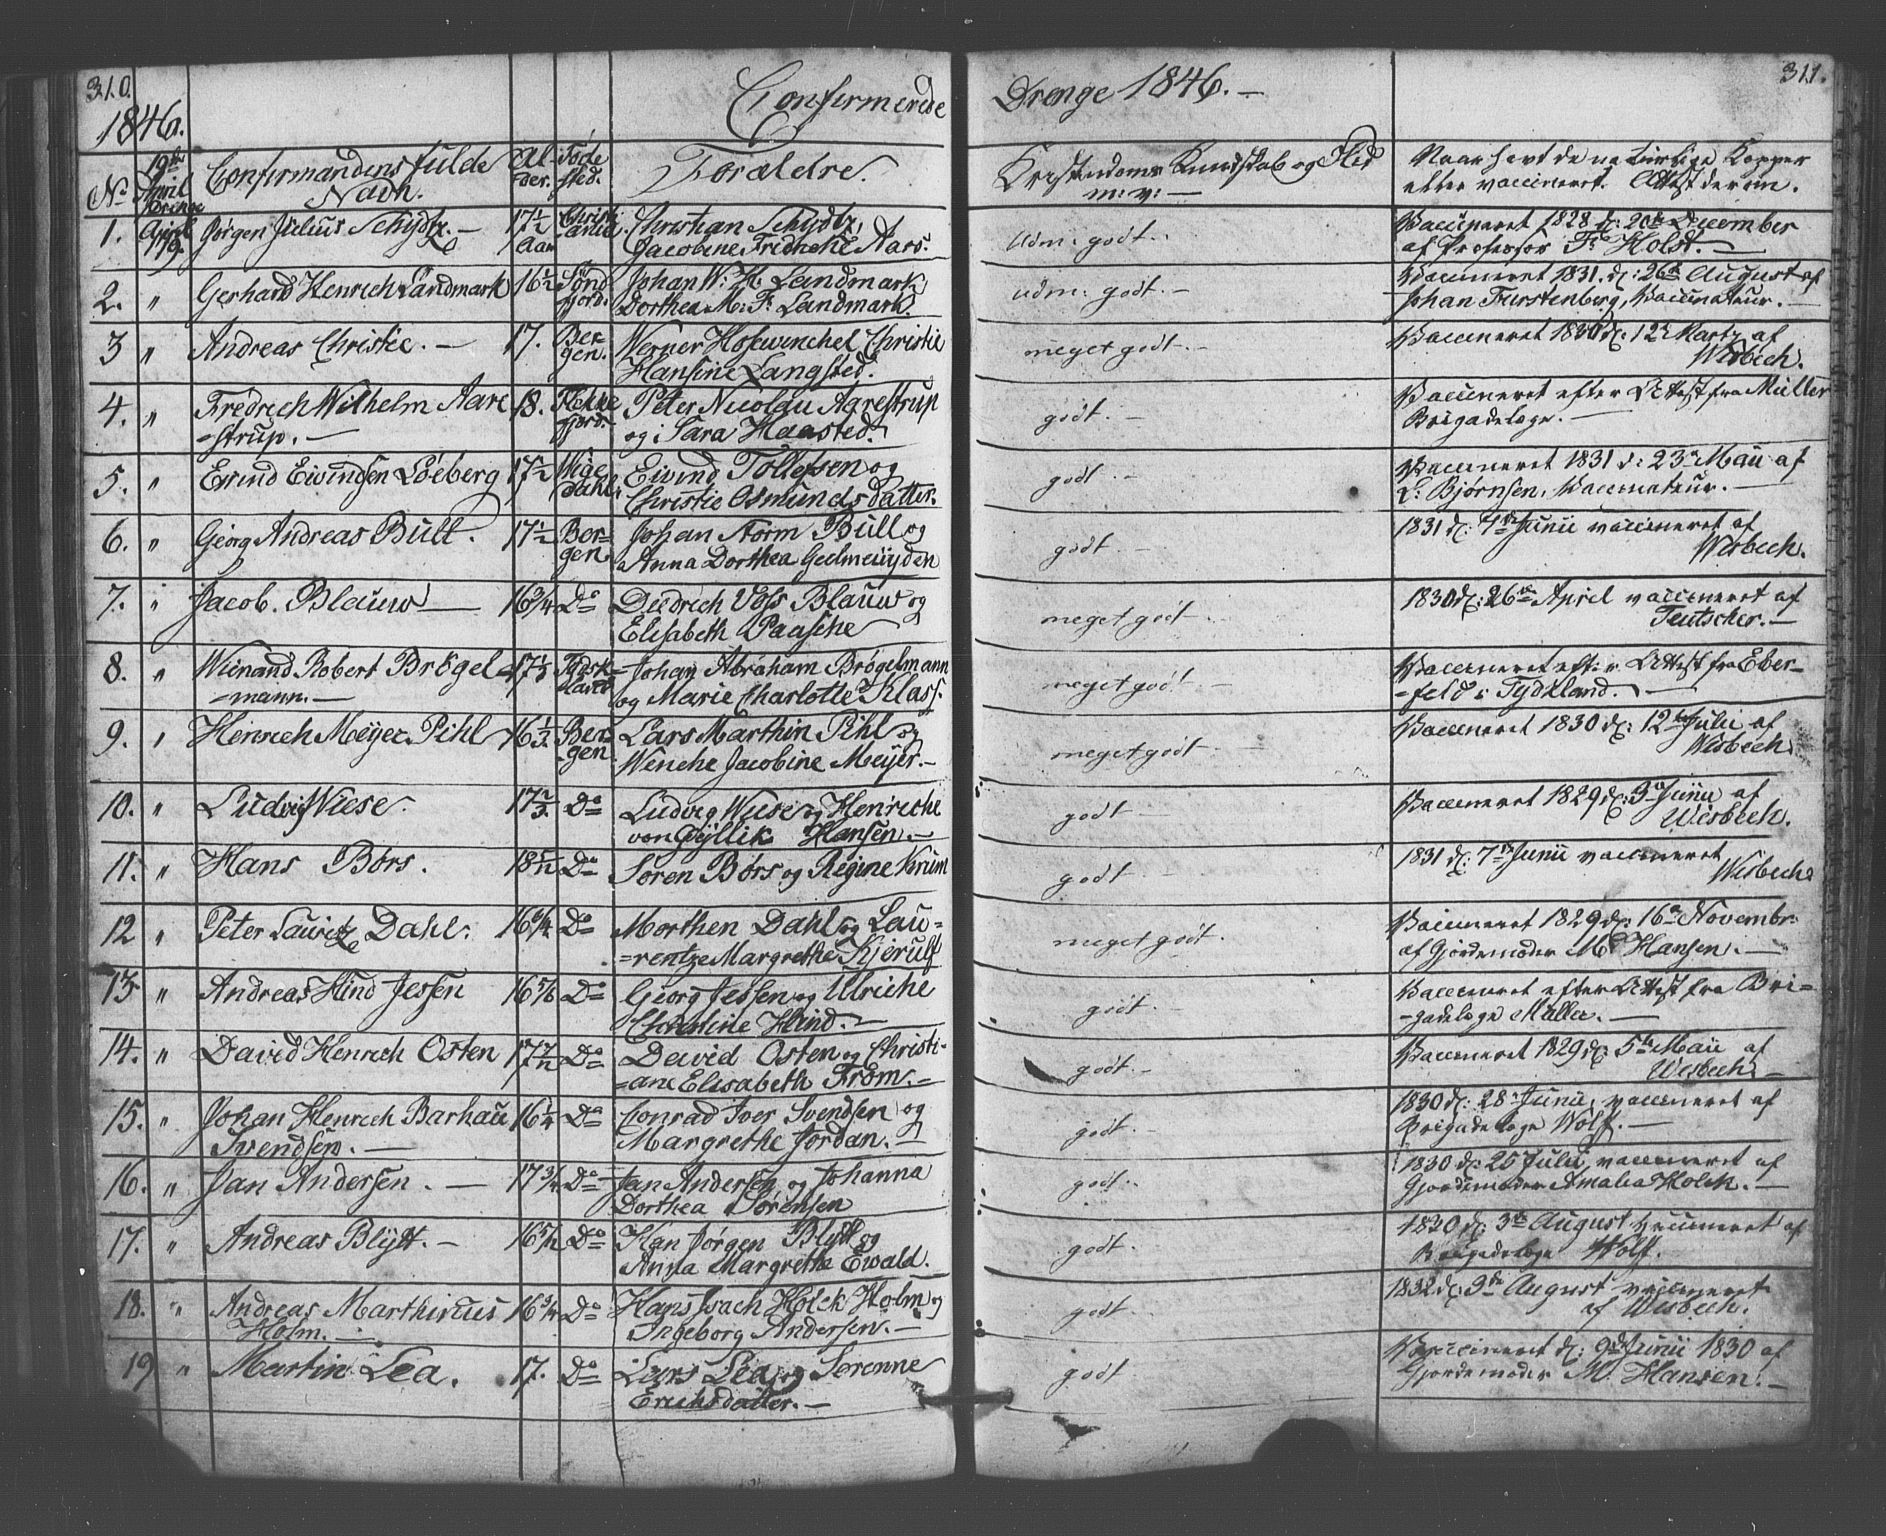 310.
1846.
Confirmerede Drenge 1846. —
311.
No
19de April
Confirmandens fulde Navn.
Alder.
Føde sted.
Forældre.
Kristendoms Kundskab og Flid m: v: —
Naar havt de naturlige Kopper eller vaccineret. Attest derom.
1. April 19. Jørgen Julius Schydtz. — 17½ Aar Christiania. Christian Schydtz, Jacobine Fredrikke Aars. Udm. godt. Vaccineret 1828 d: 20de December af Professor Fr Holst. —
2. " Gerhard Henrich Landmark 16½ Sønd fjord. Johan W: H. Landmark Dorthea M: F: Landmark. udm: godt. — Vaccineret 1831. d: 26de August af Johan Furstenberg, Vaccinateur. —
3 " Andreas Christie. — 17. Bergen. Werner Hosewinchel Christie Hansine Langsted. meget godt. — Vaccineret 1830 d: 12 Martz af Wisbech.
4. " Fredrich Wilhelm Aare =strup. — 18. Flekke fjord. Peter Nicolau Agrestrup og Sara Haasted. godt. — Vaccineret efter Attest fra Müller Brigadelæge. —
5. " Eivind Eivindsen Løeberg 17½ Wigedahl. Eivind Tollefsen og Christie Osmundsdatter. godt. — Vaccineret 1831 d: 23 Maii af L: Bjørnsen, Vaccinateur. —
6. " Georg Andreas Bull. 17½ Bergen Johan Norm Bull og Anna Dorthea Geelmeijden godt. — 1831 d: 7de Junii vaccineret af Wesbech.
7. " Jacob. Blauw — 16¾ Do Diedrich Voss Blauw og Elisabeth Paasche meget godt. — 1830 d: 26de April vaccineret af Teutscher. —
8. " Wienand Robert Brögel =mann. — 17½ Tydskland Johan Abraham Brøgelmann og Marie Charlotte Klass. meget godt. — Vaccineret efter Attest fra Eber= =feld i Tydskland. —
9. " Henrich Meyer Pihl 16⅓ Bergen Lars Marthin Pihl og Wenche Jacobine Meyer. — meget godt — Vaccineret 1830 d: 12te Julii af Wisbech.
10. " Ludvig Wiese. 17⅔ Do Ludvig Wiese og Henriche von Gyllik Hansen. — godt — Vaccineret 1829 d: 3die Junii af Wisbech.
11. " Hans Børs. 18 5/12 Do Søren Børs og Regine Krum godt — 1831 d: 7de Junii vaccineret Wisbech.
12 " Peter Lauritz Dahl. 16¾ Do Morthen Dahl og Lau= =rentze Margrethe Kjerulf meget godt. Vaccineret 1829 d: 16de Novembr: af Gjordemoder M. Hansen. —
13 " Andreas Hind Jessen 16 5/6 Do Georg Jessen og Ulriche Christine Hind. — godt Vaccineret efter Attest fra Bri= =gadelæge Müller. —
14. " David Henrich Osten 17 7/12 Do David Osten og Christi= =ane Elisabeth From. — godt. — Vaccineret 1829 d: 5te Maii af Wesbech. —
15. " Johan Henrich Barhau Svendsen. — 16¼ Do Conrad Iver Svendsen og Margrethe Jordan. — godt. — 1830 d: 28 Junii, vaccineret af Brigadelæge Wolf. —
16. " Jan Andersen. — 17¾ Do Jan Andersen og Johanna Dorthea Sørensen godt. 1830 d: 25 Julii, vaccineret af Gjordemoder Amalia Holck. —
17. " Andreas Blytt. — 16 5/12 Do Han Jørgen Blytt og Anna Margrethe Ewald. godt. 1830 d: 3de August vaccineret af Brigadelæge Wolf.
18. " Andreas Marthinius Holm. — 16¾ Do Hans Isach Holck Holm og Ingeborg Andersen. — godt 1832 d: 9de August vaccineret af Wisbech.
19 " Martin Lea. 17. Do Lars Lea og Serenne Erichsdatter. — godt Vaccineret d: 9de Junii 1830 af Gjordemoder M. Hansen. —